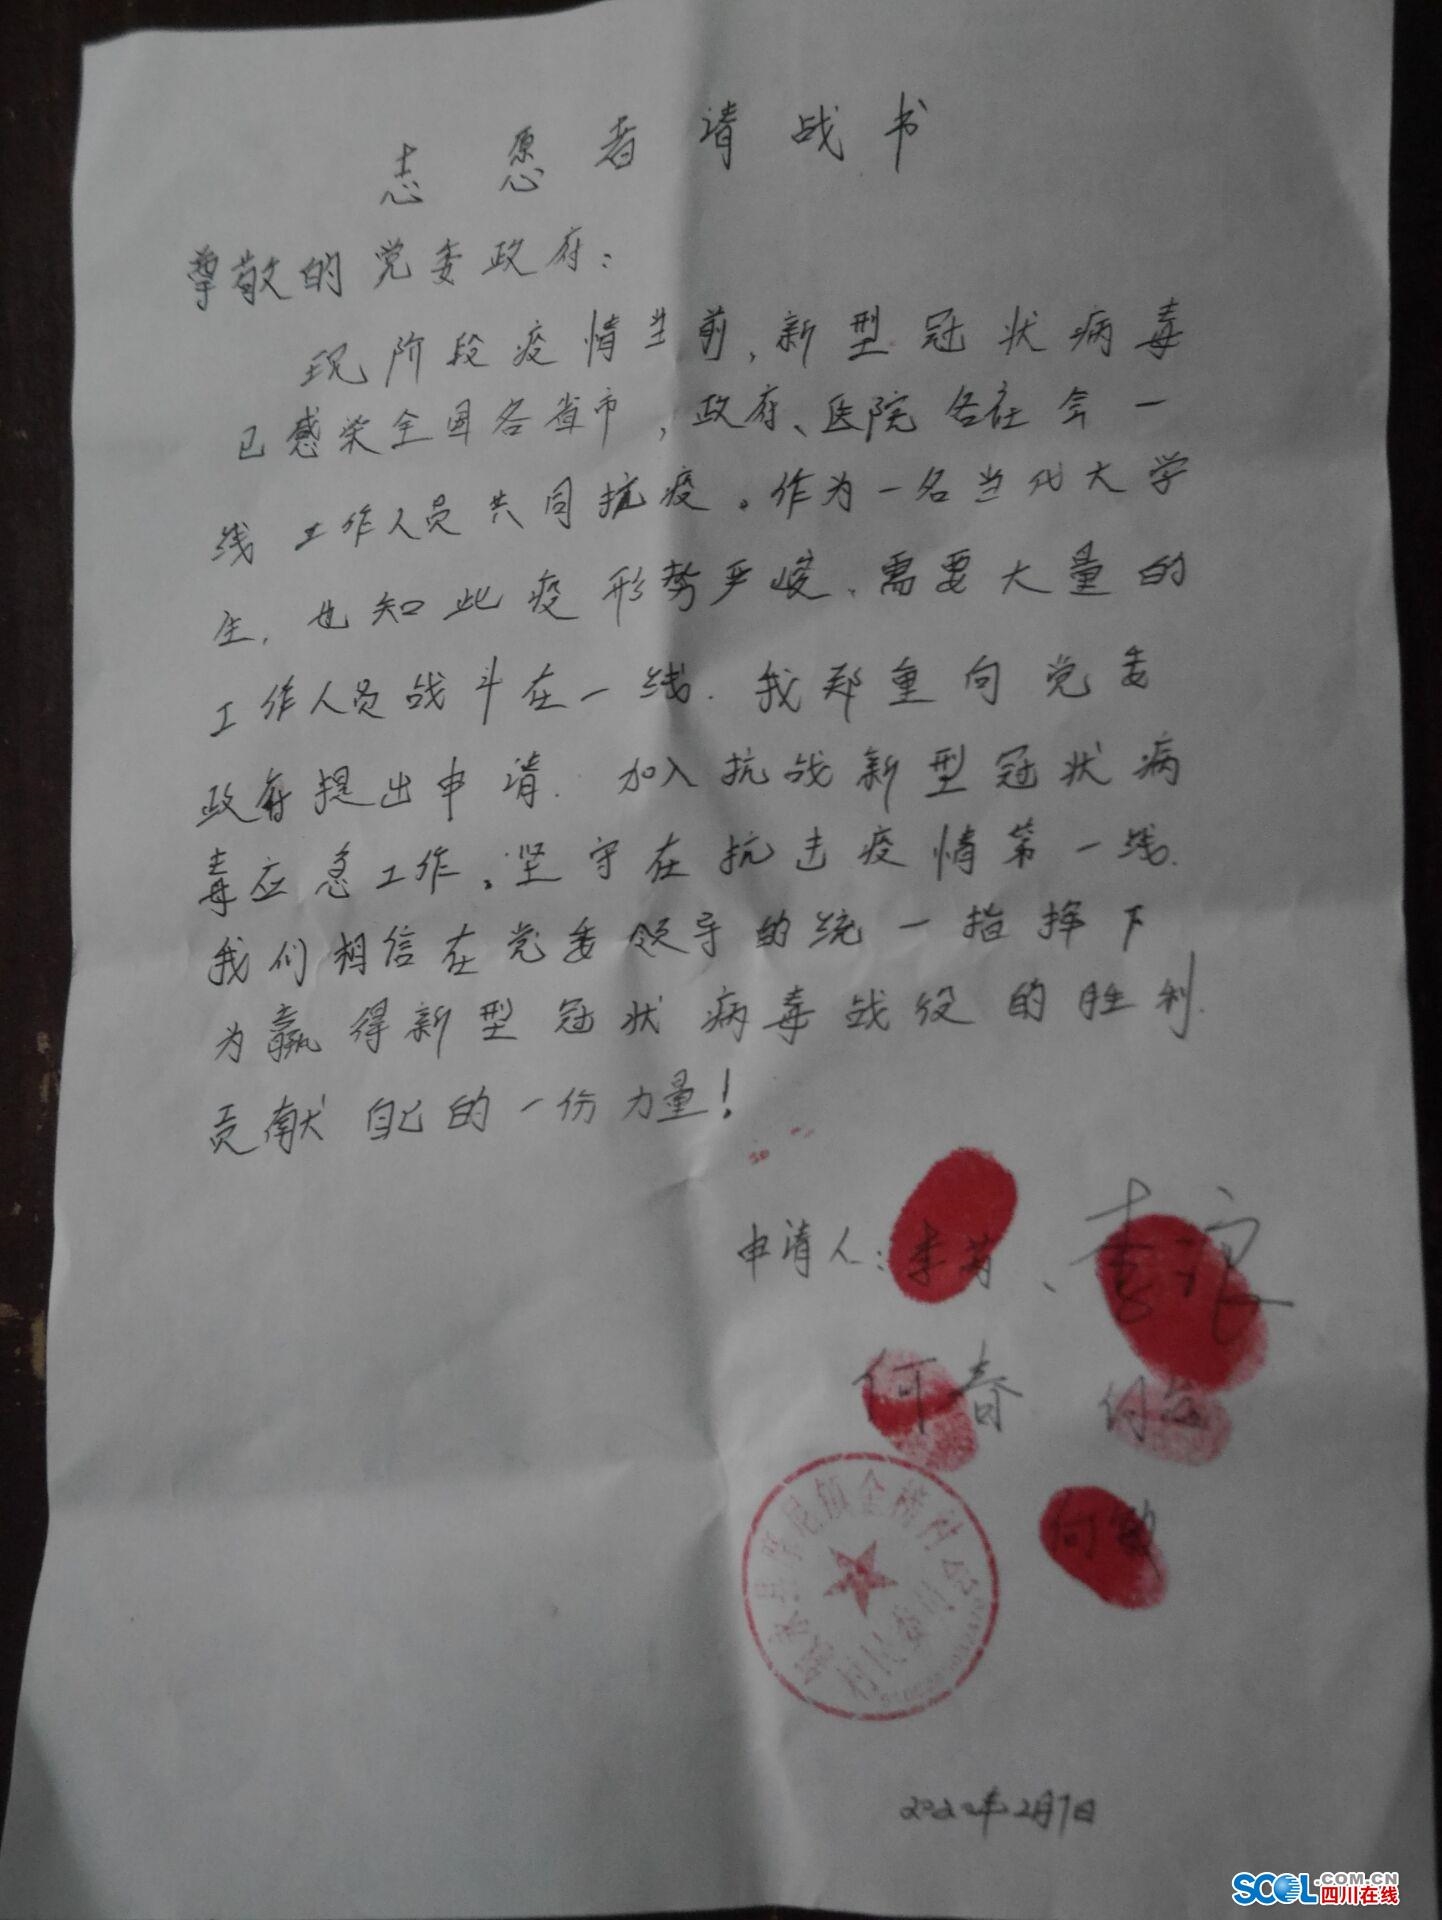 志愿者请战书
尊敬的党委政府：
现阶段疫情当前，新型冠状病毒
已感染全国各省市，政府、医院各社会一
线工作人员共同抗疫。作为一名当代大学
生，也知此疫形势严峻，需要大量的
工作人员战斗在一线．我郑重向党委
政府提出申请．加入抗战新型冠状病
毒应急工作。坚守在抗击疫情第一线．
我们相信在党委领导的统一指挥下
为赢得新型冠状病毒战役的胜利．
贡献自己的一份力量！
申请人：李 、李
何春 何
何敏
叙永县摩尼镇金榜社会
村民委员会
2020年2月7日
SCOL.COM.CN
四川在线